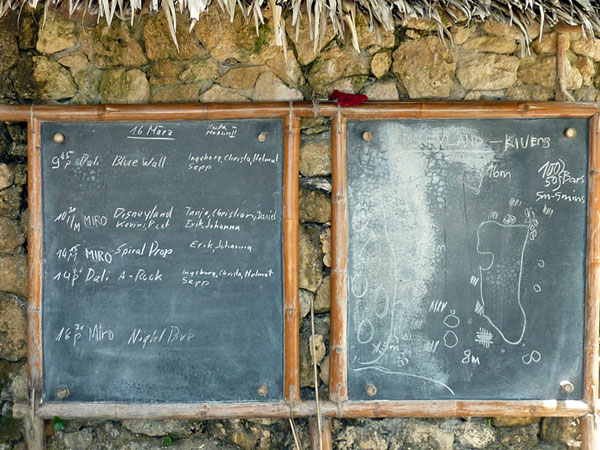 16 März
9 45 P Dali Blue Wall Ingeborg, Christa, Helmut
Sepp
10 30 M MIRO Disneyland Tanja, Christian, Daniel
Erik, Johanna
14 15 M MIRO Spiral Drop Erik, Johanna
14 P Dali A-Rock Ingeborg, Christa, Helmut
Sepp
16 30 P Miro Night Dive
DISNEYLAND - KIVENS
16m
100
50 Bars
5m - 5mins
5m
8m